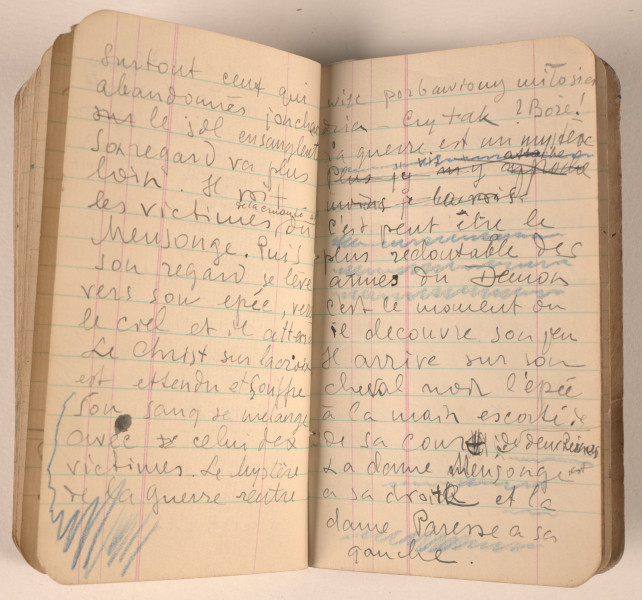 Surtout ceux qui
abandonnés jonchent
sur le sol ensanglenté
Son regard va plus
loin. Il voit
de la cruauté
les victimes, du
Mensonge. Puis
son regard se lève
vers son epée, vers
le ciel et il attend
Le Christ sur la croix
est ettendu et souffre
Son sang se melange
avec celui des
victimes. Le mystère
de la guerre rentre
więc pozbawiony miłosier
dzia - Czy tak ? Boże!
La guerre est un mystère
Plus j'y
moins je la vois.
C'est peut être le
plus redoutable des
armes du Demon
C'est le moment ou
il decouvre son jeu
Il arrive sur son
cheval noir l'épée
à la main escorté
de sa cour de deux Reines
La dame Mensonge est
a sa droite et la
dame Paresse a sa
gauche.